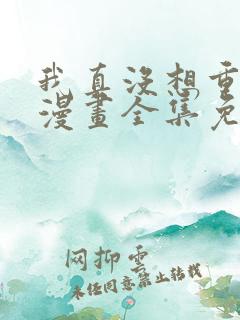 我真没想重
漫畫全集免
网抑雲
未经同意禁止转载